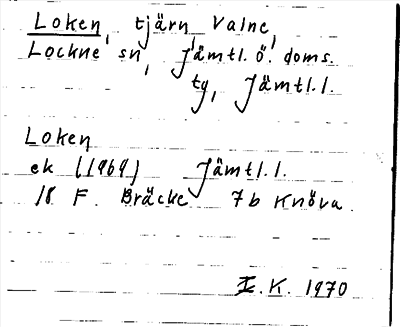 Loken, tjärn, Valne,
Lockne sn, Jämtl. ö. doms.
tg, Jämtl. l.
Loken
ek (1969) Jämtl. l.
18 F. Bräcke 7b Knöva
I. K. 1970